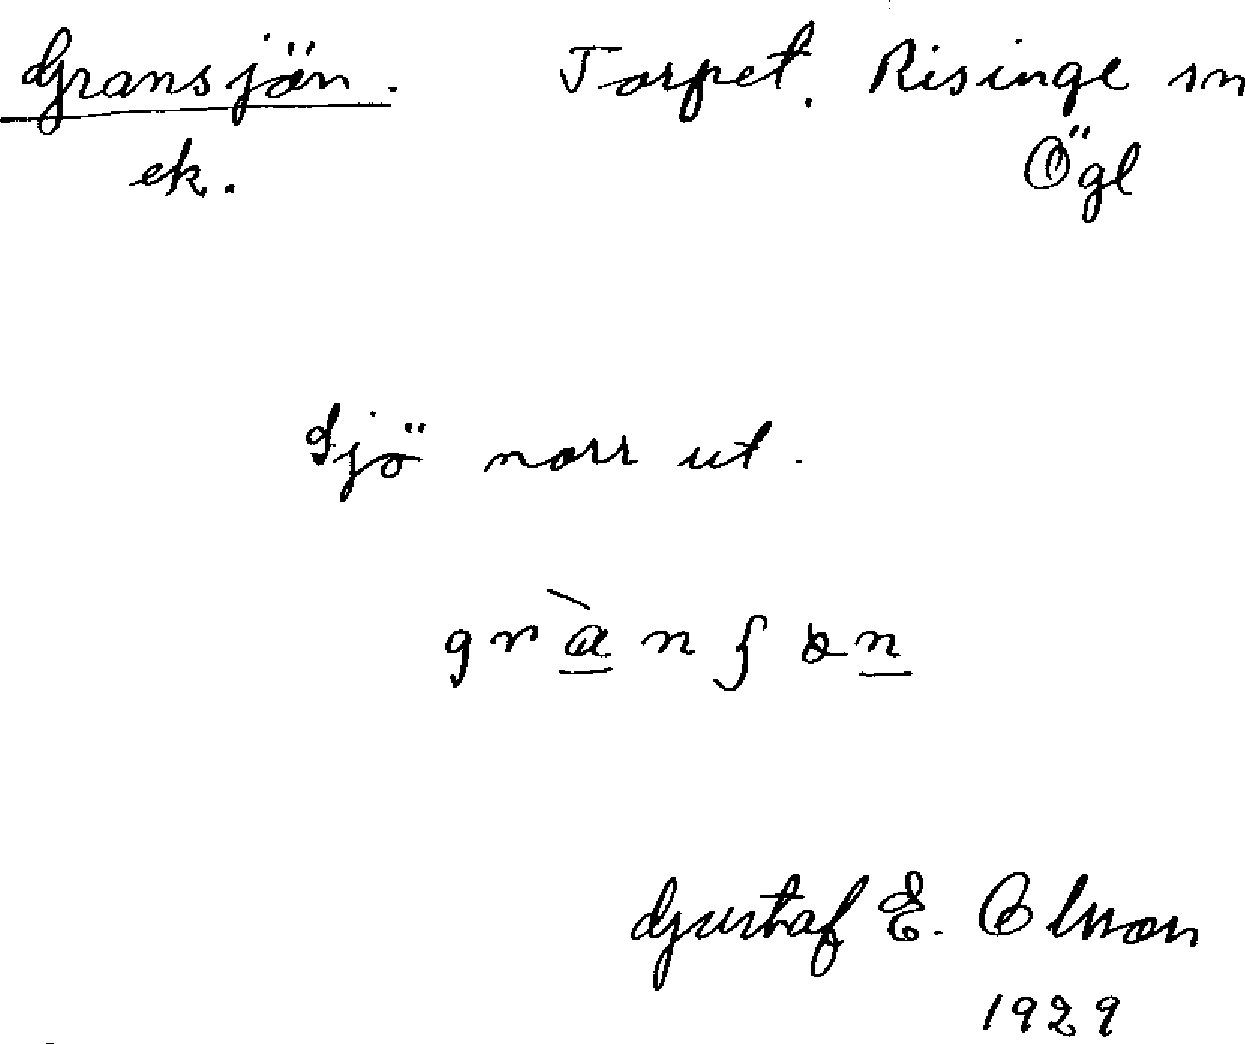 Gransjön. Torpet. Risinge sn
ek. Ögl
Sjö norr ut.
grànʃɵn
Gustaf E. Olsson
1929